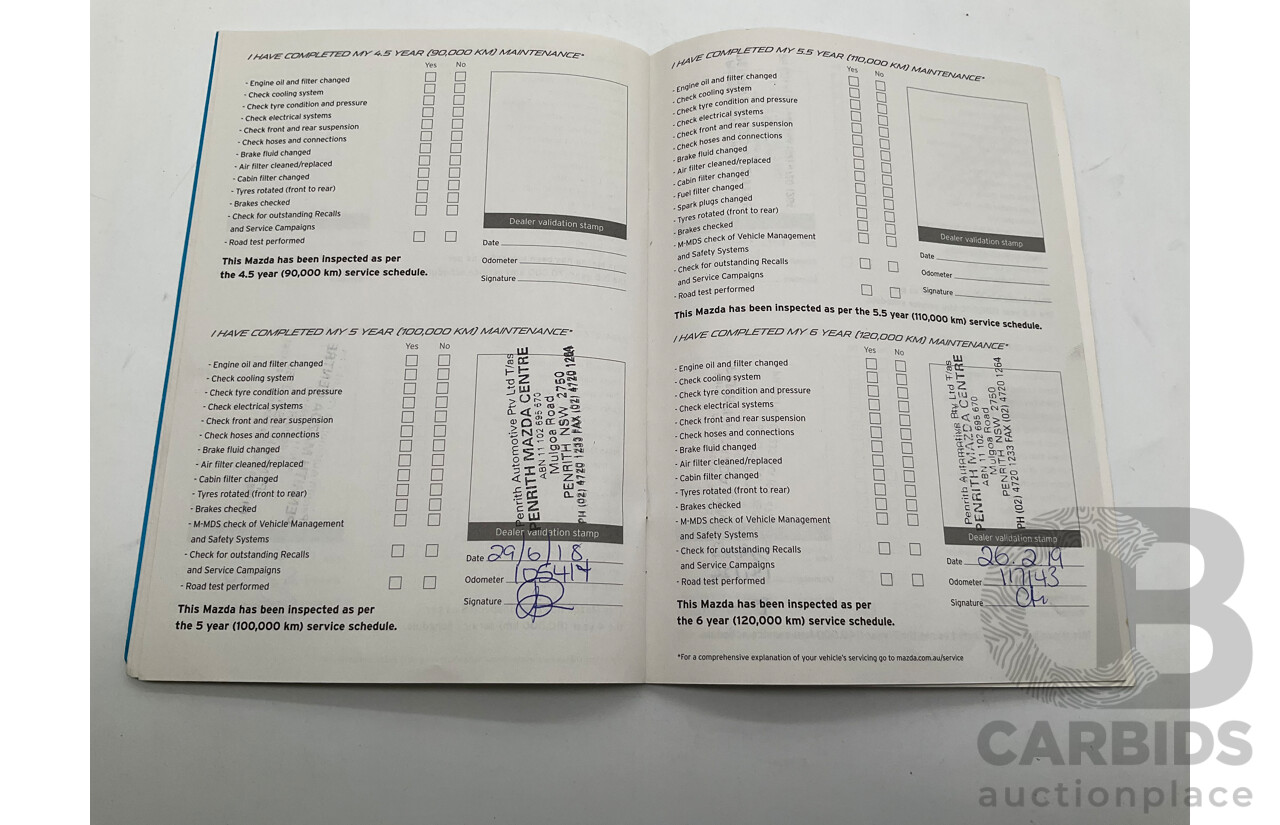 I HAVE COMPLETED MY 4.5 YEAR (90,000 KM) MAINTENANCE*
Yes No
- Engine oil and filter changed
- Check cooling system
- Check tyre condition and pressure
- Check electrical systems
- Check front and rear suspension
- Check hoses and connections
- Brake fluid changed
- Air filter cleaned/replaced
- Cabin filter changed
- Tyres rotated (front to rear)
- Brakes checked
- Check for outstanding Recalls
and Service Campaigns
- Road test performed
This Mazda has been inspected as per
the 4.5 year (90,000 km) service schedule.
Dealer validation stamp
Date
Odometer
Signature
I HAVE COMPLETED MY 5 YEAR (100,000 KM) MAINTENANCE*
Yes No
- Engine oil and filter changed
- Check cooling system
- Check tyre condition and pressure
- Check electrical systems
- Check front and rear suspension
- Check hoses and connections
- Brake fluid changed
- Air filter cleaned/replaced
- Cabin filter changed
- Tyres rotated (front to rear)
- Brakes checked
- M-MDS check of Vehicle Management
and Safety Systems
- Check for outstanding Recalls
and Service Campaigns
- Road test performed
This Mazda has been inspected as per
the 5 year (100,000 km) service schedule.
Penrith Automotive Pty Ltd T/as
PENRITH MAZDA CENTRE
ABN 11 102 695 670
Mulgoa Road
PENRITH NSW 2750
PH (02) 4720 1233 FAX (02) 4720 1264
Dealer validation stamp
Date 29/6/18
Odometer 105417
Signature
I HAVE COMPLETED MY 5.5 YEAR (110,000 KM) MAINTENANCE*
Yes No
- Engine oil and filter changed
- Check cooling system
- Check tyre condition and pressure
- Check electrical systems
- Check front and rear suspension
- Check hoses and connections
- Brake fluid changed
- Air filter cleaned/replaced
- Cabin filter changed
- Fuel filter changed
- Spark plugs changed
- Tyres rotated (front to rear)
- Brakes checked
- M-MDS check of Vehicle Management
and Safety Systems
- Check for outstanding Recalls
and Service Campaigns
- Road test performed
This Mazda has been inspected as per the 5.5 year (110,000 km) service schedule.
Dealer validation stamp
Date
Odometer
Signature
I HAVE COMPLETED MY 6 YEAR (120,000 KM) MAINTENANCE*
Yes No
- Engine oil and filter changed
- Check cooling system
- Check tyre condition and pressure
- Check electrical systems
- Check front and rear suspension
- Check hoses and connections
- Brake fluid changed
- Air filter cleaned/replaced
- Cabin filter changed
- Tyres rotated (front to rear)
- Brakes checked
- M-MDS check of Vehicle Management
and Safety Systems
- Check for outstanding Recalls
and Service Campaigns
- Road test performed
This Mazda has been inspected as per
the 6 year (120,000 km) service schedule.
Penrith Automotive Pty Ltd T/as
PENRITH MAZDA CENTRE
ABN 11 102 695 670
Mulgoa Road
PENRITH NSW 2750
PH (02) 4720 1233 FAX (02) 4720 1264
Dealer validation stamp
Date 26.2.19
Odometer 117143
Signature
*For a comprehensive explanation of your vehicle's servicing go to mazda.com.au/service
CB
CARBIDS
auctionplace